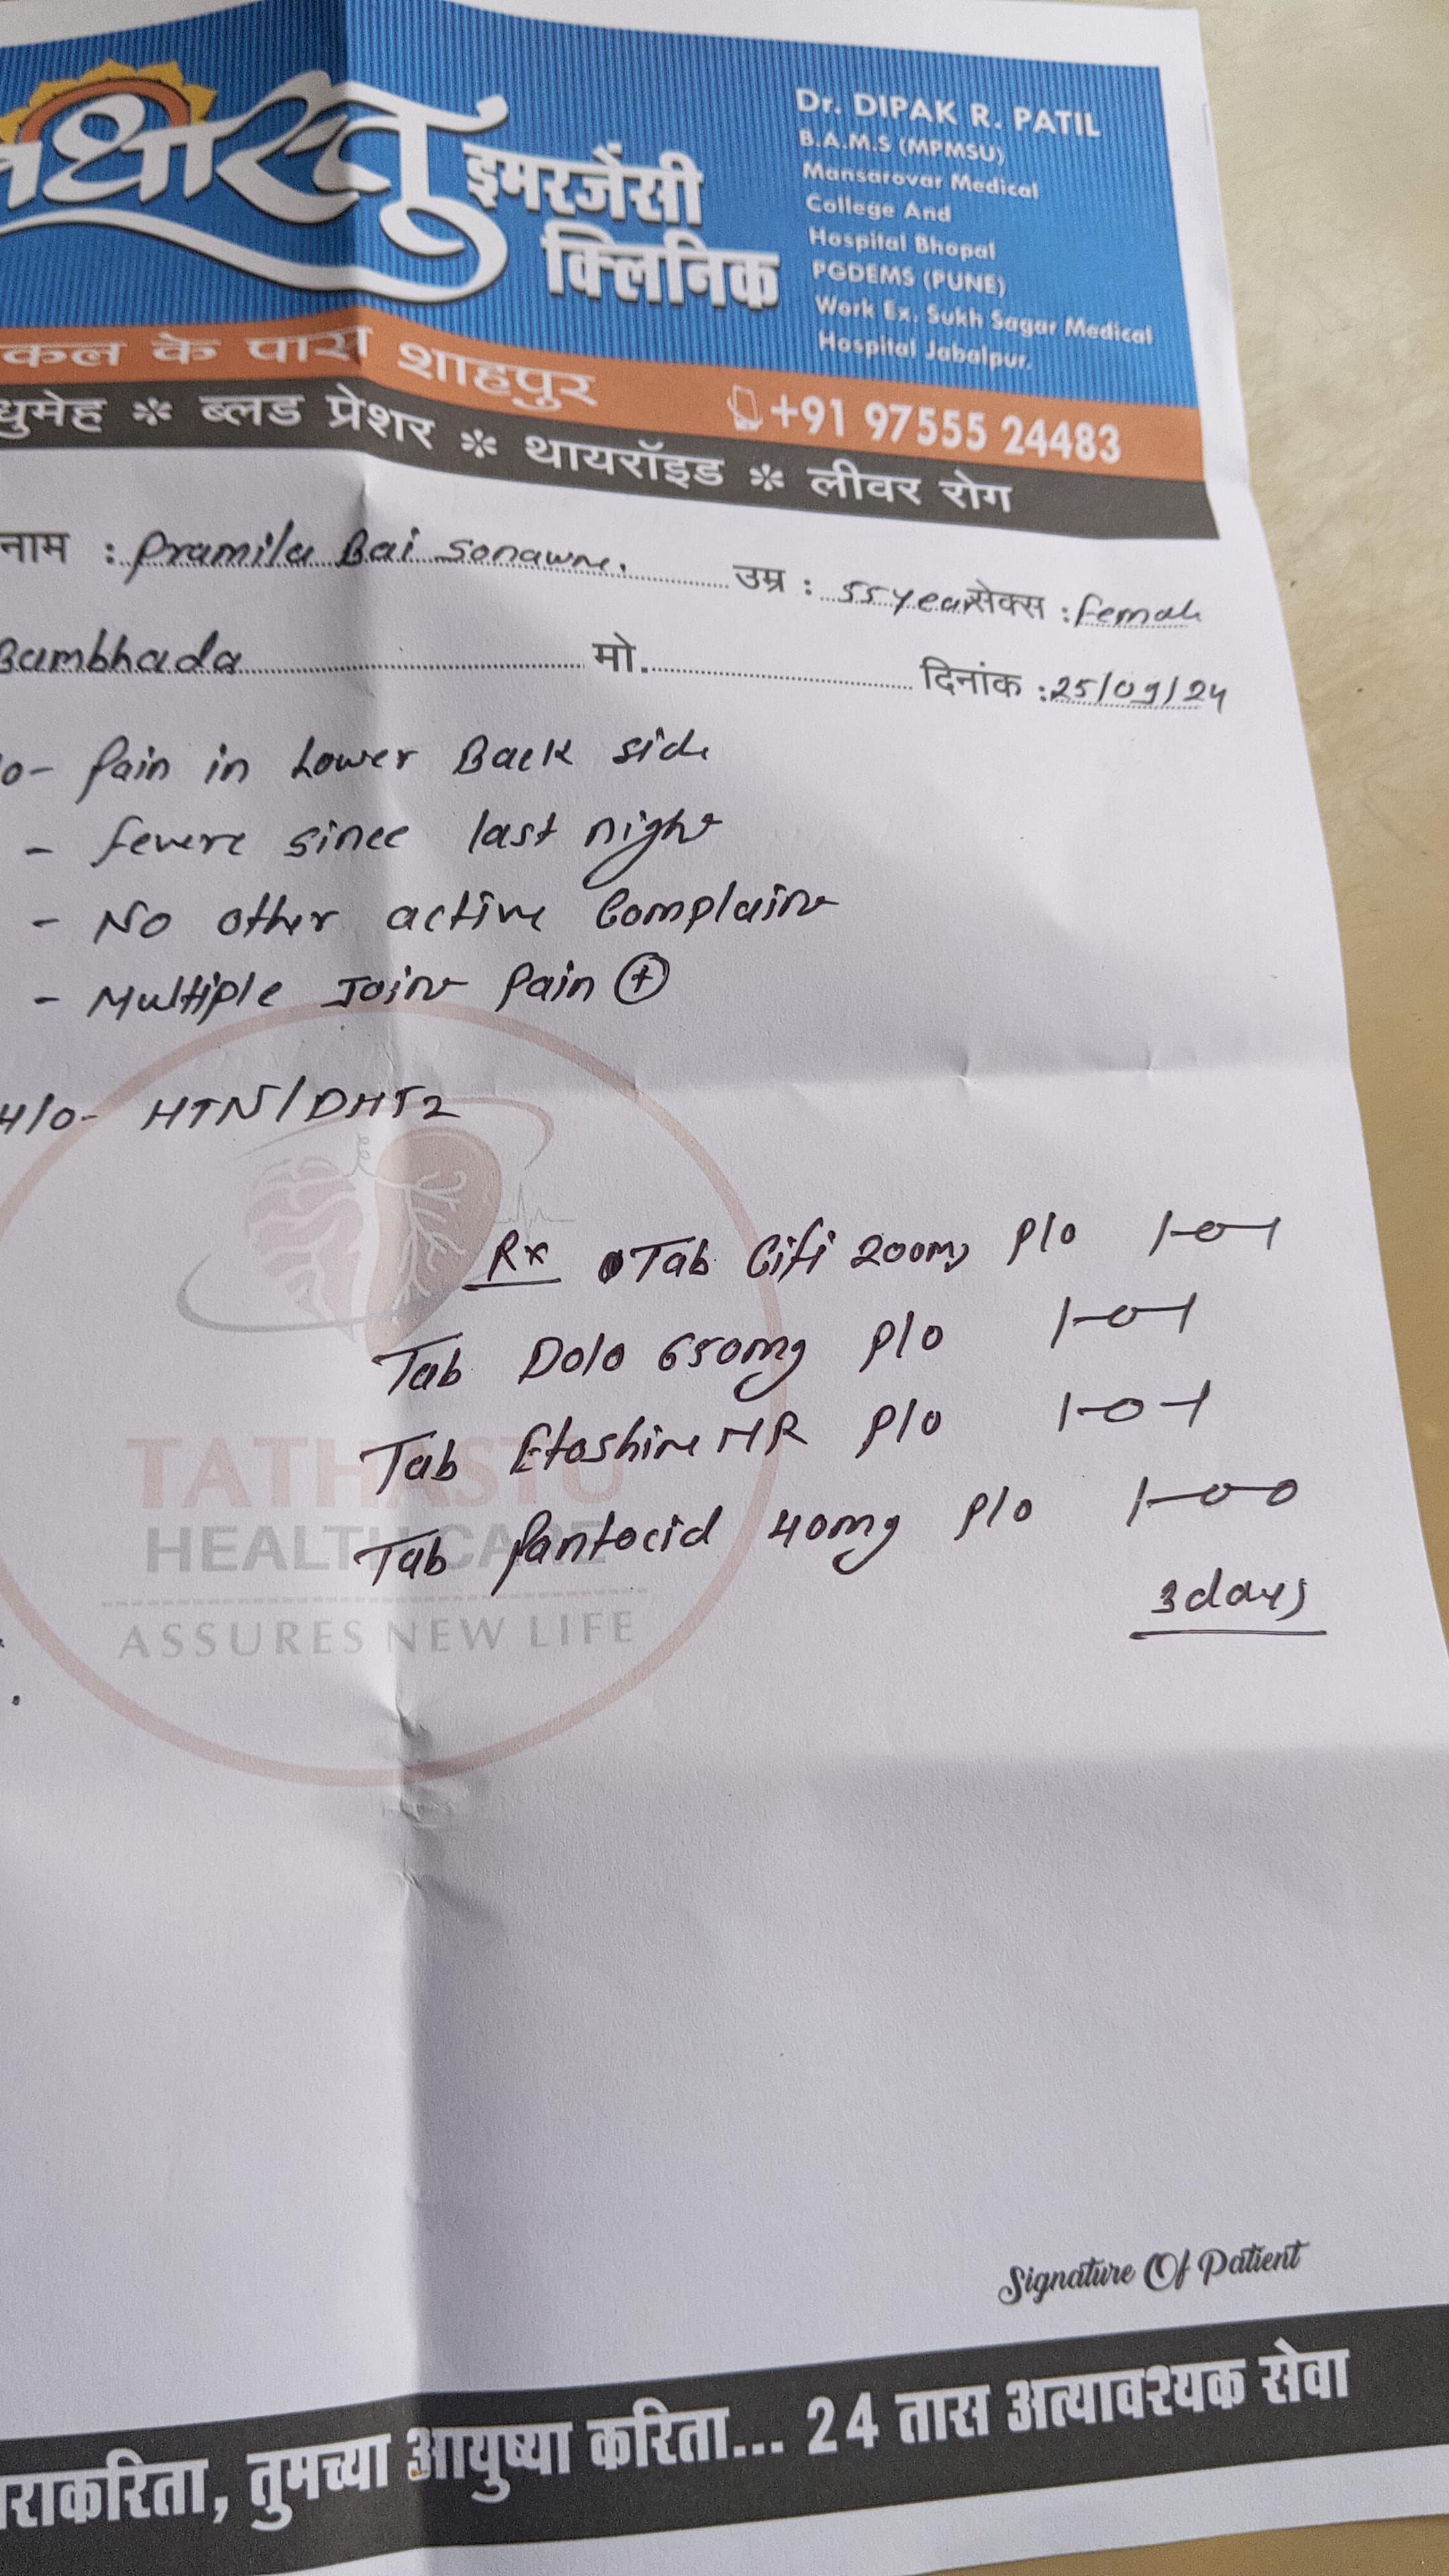 थास्तु इमरजेंसी
क्लिनिक
Dr. DIPAK R. PATIL
B.A.M.S (MPMSU)
Mansarovar Medical
College And
Hospital Bhopal
PGDEMS (PUNE)
Work Ex. Sukh Sagar Medical
Hospital Jabalpur.
कल के पास शाहपुर +91 97555 24483
धुमेह * ब्लड प्रेशर * थायरॉइड * लीवर रोग
नाम : Pramila Bai Sonawne. उम्र : 55 year सेक्स : female
Bambhada मो. दिनांक : 25/09/24
/o- Pain in Lower Back side
- fevere since last night
- No other active Complaint
- Multiple Joint Pain +
H/O- HTN/DMT2
Rx Tab Cifi 200mg P/O 1-0-1
Tab Dolo 650mg P/O 1-0-1
Tab Etoshine MR P/O 1-0-1
Tab Pantocid 40mg P/O 1-0-0
3 days
TATHASTU
HEALTH CARE
ASSURES NEW LIFE
Signature Of Patient
राकरिता, तुमच्या आयुष्या करिता... 24 तास अत्यावश्यक सेवा